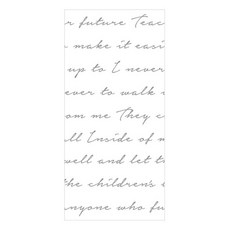 r future Teac
make it easi
up to I never
ever to walk
om me They c
ll Inside of m
well and let t
the children's
nyone who fu